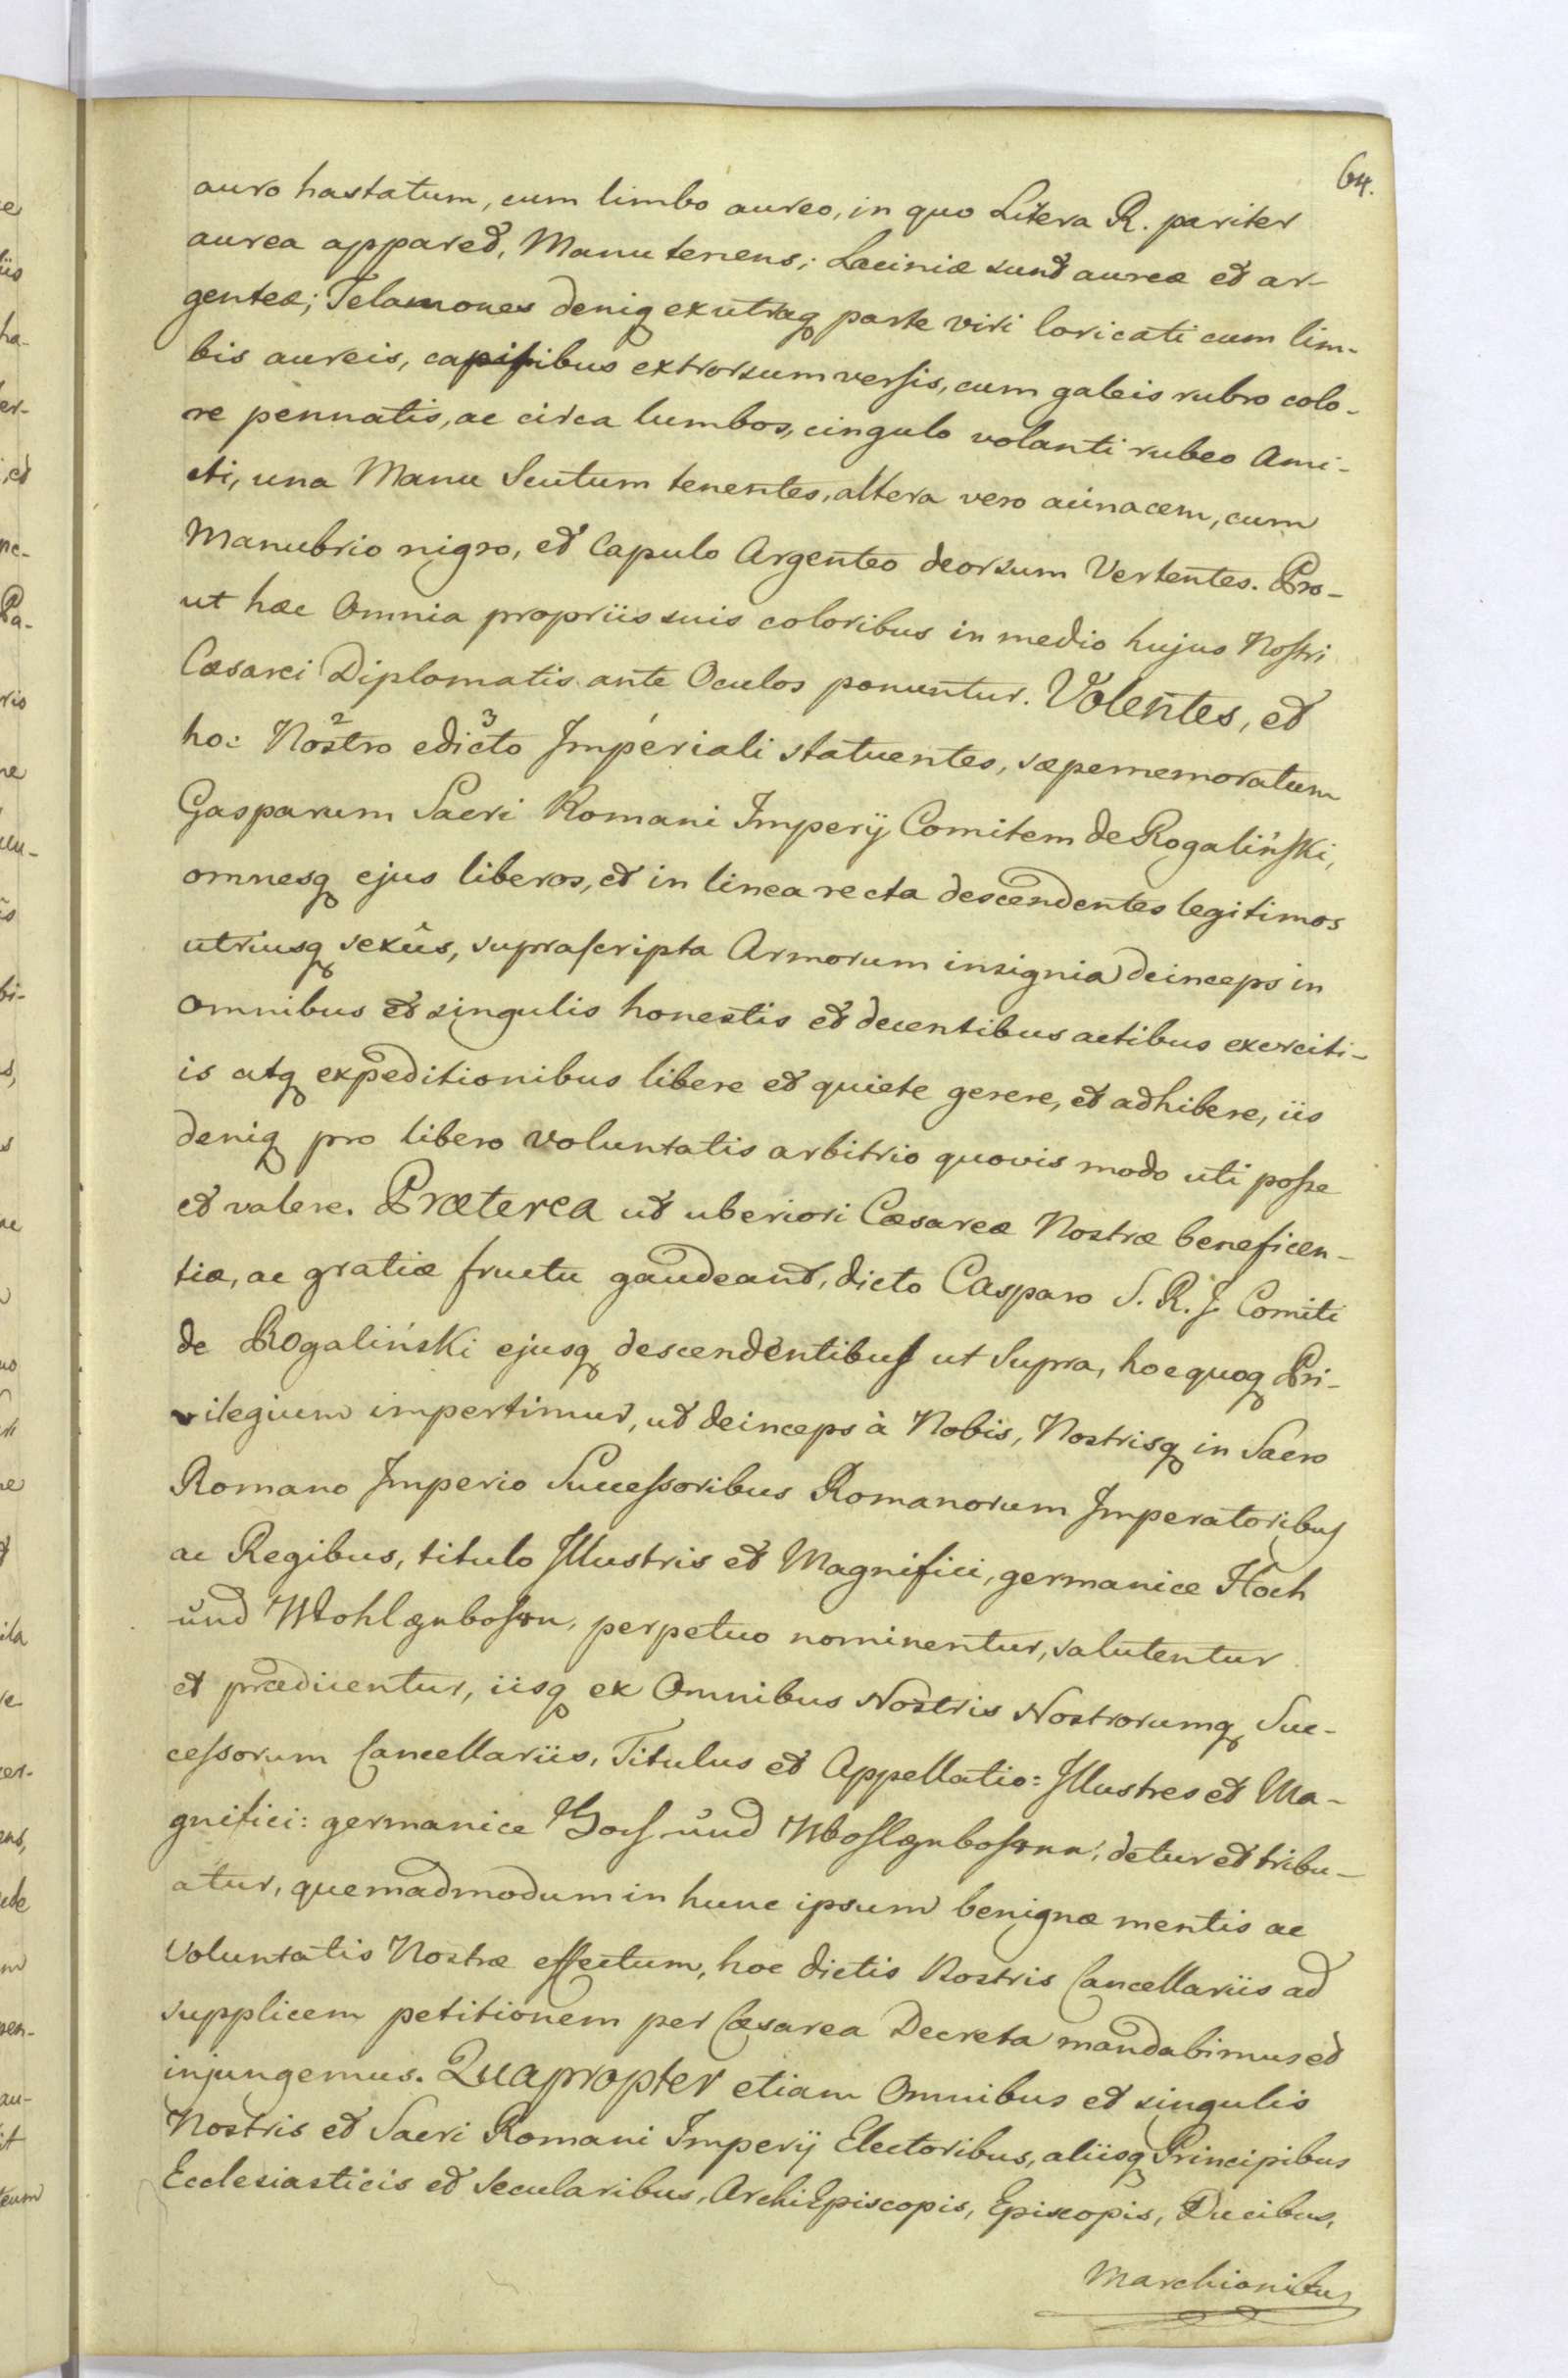 64.
auro hastatum, cum limbo aureo, in quo Litera R. pariter
aurea apparet, Manu tenens; Laciniæ sunt aureæ et ar-
genteæ; Telamones deniq exutraq parte viri loricati cum lim-
bis aureis, capitibus extrorsum versis, cum galeis rubro colo-
re pennatis, ac circa lumbos, cingulo volanti rubeo Ami-
cti, una Manu Scutum tenentes, altera vero acinacem, cum
Manubrio nigro, et Capulo Argenteo deorsum Vertentes. Pro-
ut hæc Omnia propriis suis coloribus in medio hujus Nostri
Cæsarei Diplomatis ante Oculos ponuntur. Volentes, et
hoc Nostro edicto Imperiali statuentes, sæpememoratum
Gasparum Sacri Romani Imperij Comitem de Rogaliński,
omnesq ejus liberos, et in linea recta descendentes legitimos
utriusq sexûs, suprascripta Armorum insignia deinceps in
omnibus et singulis honestis et decentibus actibus exerciti-
is atq expeditionibus libere et quiete gerere, et adhibere, iis
deniq pro libero voluntatis arbitrio quovis modo uti posse
et valere. Præterea ut uberiori Cæsareæ Nostræ beneficen-
tiæ, ac gratiæ fructu gaudeant, dicto Casparo S. R. I. Comiti
de Rogaliński ejusq descendentibus ut Supra, hoc quoq Pri-
vilegium impertimur, ut deinceps à Nobis, Nostrisq in Sacro
Romano Imperio Successoribus Romanorum Imperatoribus
ac Regibus, titulo Illustris et Magnifici, germanice Hoch
und Wohlgebohren, perpetuo nominentur, salutentur
et prædicentur, iisq ex Omnibus Nostris Nostrorumq Suc-
cessorum Cancellariis, Titulus et Appellatio: Illustres et Ma-
gnifici: germanice Hoch und Wohlgebohrnn, detur et tribu-
atur, quemadmodum in hunc ipsum benignæ mentis ac
Voluntatis Nostræ effectum, hoc dictis Nostris Cancellariis ad
supplicem petitionem per Cæsarea Decreta mandabimus et
injungemus. Quapropter etiam Omnibus et singulis
Nostris et Sacri Romani Imperij Electoribus, aliisq Principibus
Ecclesiasticis et Secularibus, ArchiEpiscopis, Episcopis, Ducibus,
Marchionibus